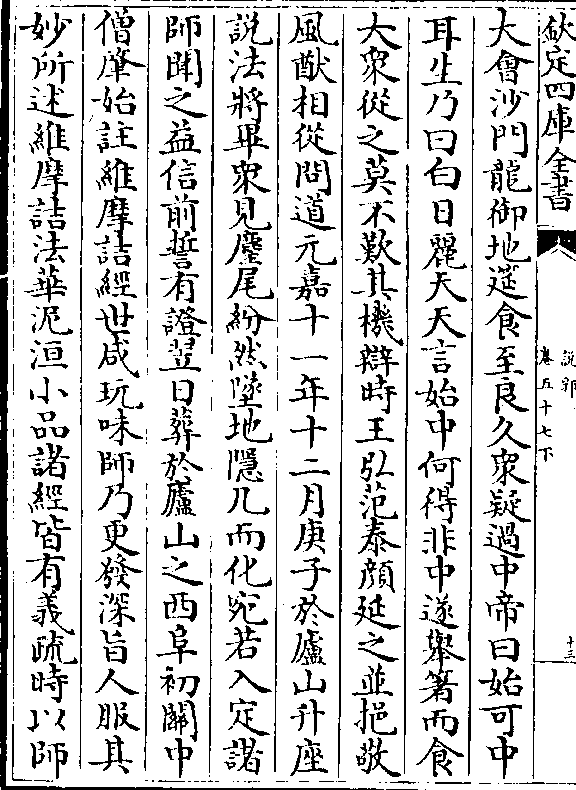 欽定四庫全書
說郛
卷五十七下
十三
大會沙門龍御地筵食至良久衆疑過中帝曰始可中
耳生乃曰白日麗天天言始中何得非中遂舉箸而食
大衆從之莫不歎其機辯時王弘范泰顔延之並挹敬
風猷相從問道元嘉十一年十二月庚子於廬山升座
說法將畢衆見麈尾紛然墜地隱几而化宛若入定諸
師聞之益信前誓有證翌日葬於廬山之西阜初關中
僧肇始註維摩詰經世咸玩味師乃更發深旨人服其
妙所述維摩詰法華泥洹小品諸經皆有義疏時以師